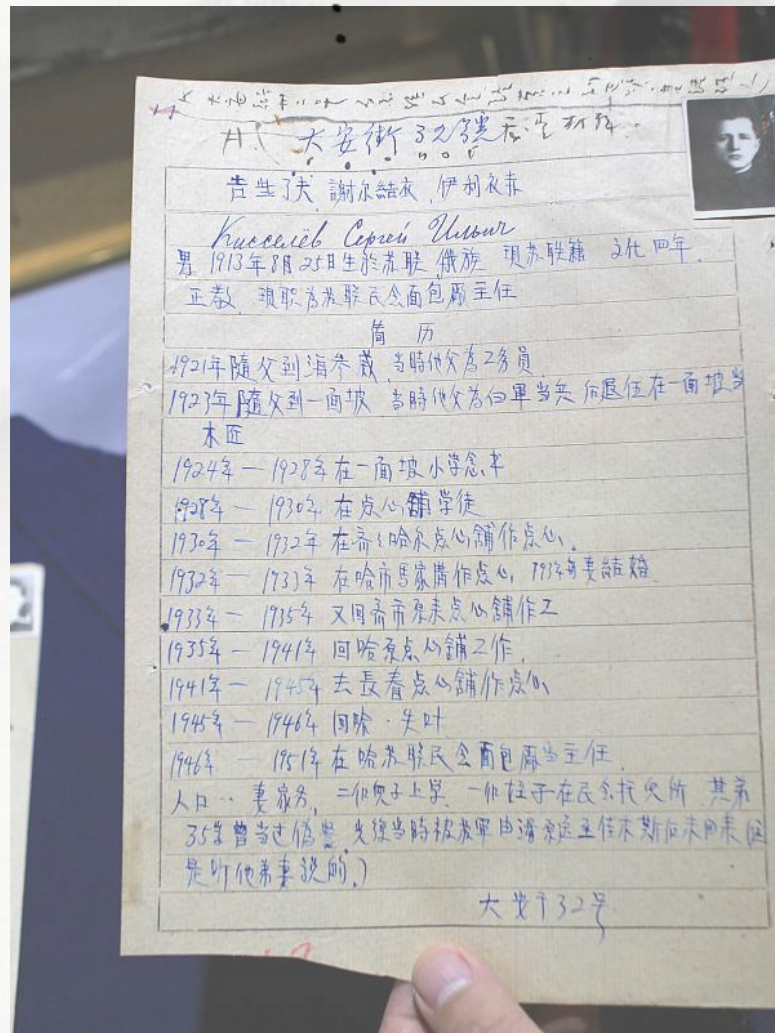 大安街32号
吉生了夫、謝尔結衣、伊利衣赤
Кисселёв Сергей Ильич
男 1913年8月25日生於苏联 俄族 現苏联籍 文化四年.
正教、現职为苏联民会面包厰主任
简 历
1921年隨父到海參崴 当時他父为工务員
1923年隨父到一面坡 当時他父为白軍当兵 后退伍在一面坡当
木匠
1924年—1928年在一面坡小学念书
1928年—1930年 在点心舖学徒
1930年—1932年 在齐々哈尔点心舖作点心、
1932年—1933年 在哈市馬家溝作点心, 1932年与妻結婚
1933年—1935年 又回齐市原来点心舖作工
1935年—1941年 回哈原点心舖工作,
1941年—1945年 去長春点心舖作点心、
1945年—1946年 回哈·失叶
1946年 —1951年在哈苏联民会面包厰当主任、
人口:妻家务, 二个兒子上学、一个侄子在民会托兒所 其弟
35年曾当过偽警, 光復当時被苏軍由 至佳木斯后未回来(这
是听他弟妻説的、)
大安街32号